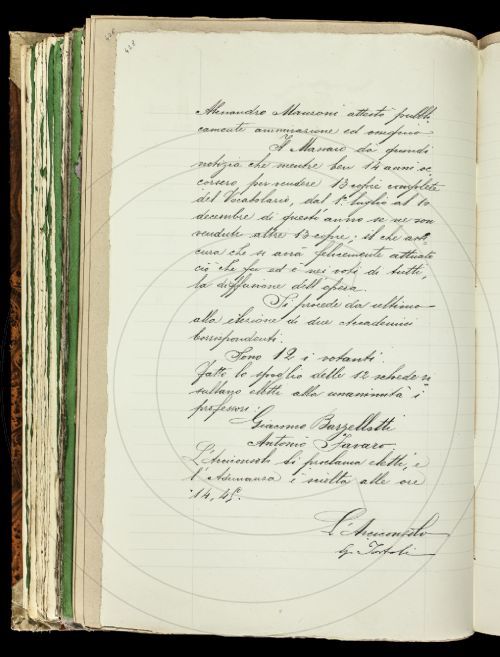 428
Alessandro Manzoni attestò pubbli
camente ammirazione ed omaggio
Il Massaro dà quindi
notizia che mentre ben 14 anni oc
corsero per vendere 13 copie complete
del Vocabolario, dal 1º luglio al 10
decembre di questo anno se ne son
vendute altre 13 copie; il che assi
cura che si avrà felicemente attuato
ciò che fu ed è nei voti di tutti,
la diffusione dell'opera.
Si procede da ultimo
alla elezione di due Accademici
Corrispondenti.
Sono 12 i votanti.
Fatto lo spoglio delle 12 schede ri
sultano eletti alla unanimità i
professori:
Giacomo Barzellotti
Antonio Favaro
L'Arciconsolo li proclama eletti, e
l'Adunanza è sciolta alle ore
14,45.
L'Arciconsolo
G. Tortoli